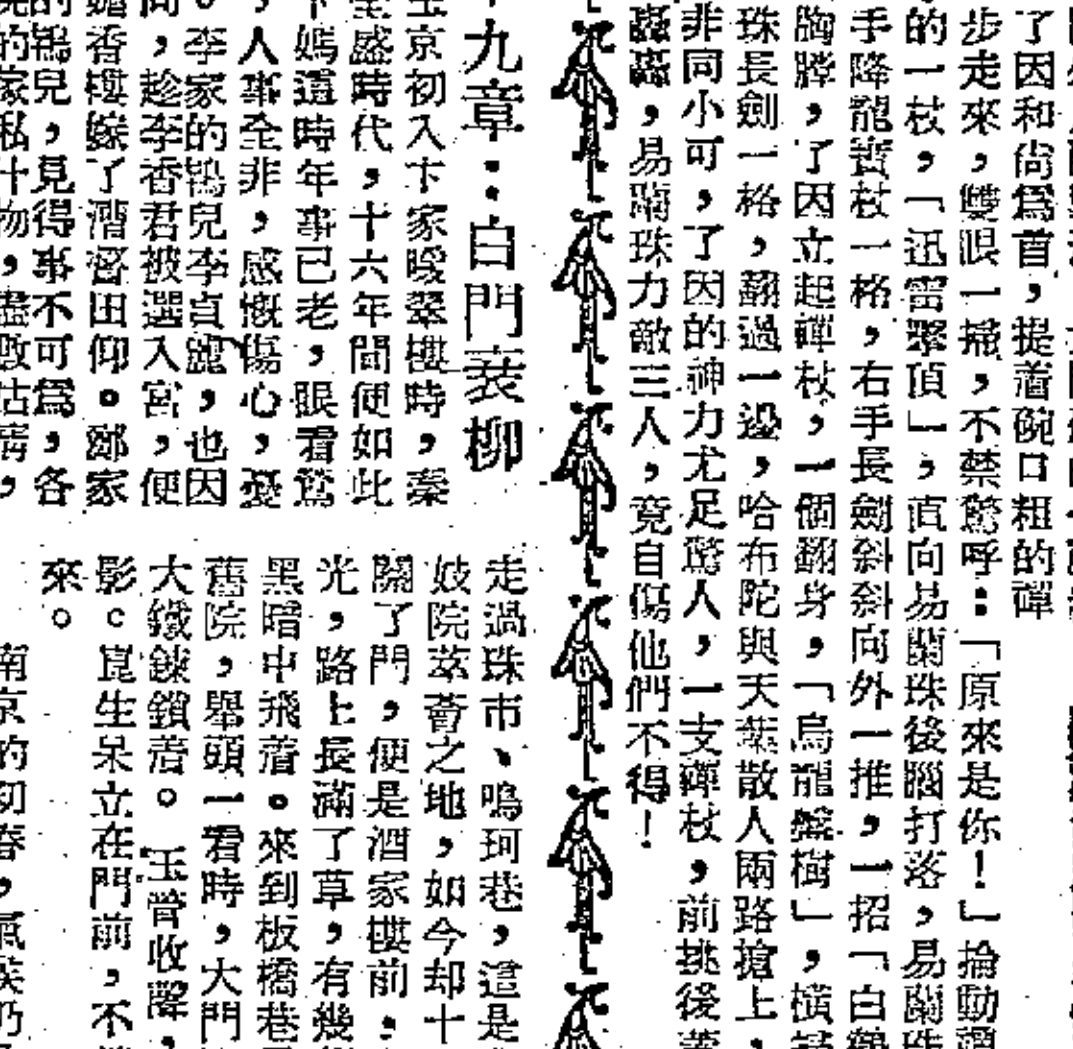 了因和尚爲首，提着碗口粗的禪
步走來，雙眼一掃，不禁驚呼：「原來是你！」掄動禪
的一杖，「迅雷擊頂」，直向易蘭珠後腦打落，易蘭珠
手降龍寶杖一格，右手長劍斜斜向外一推，一招「白鶴
胸膛，了因立起禪杖，一個翻身，「烏龍盤樹」，橫
珠長劍一格，翻過一邊，哈布陀與天葉散人兩路搶上，
非同小可，了因的神力尤足驚人，一支禪杖，前挑後
轟轟，易蘭珠力敵三人，竟自傷他們不得！
九章：白門衰柳
玉京初入卞家暖翠樓時，秦
全盛時代，十六年間便如此
卞媽這時年事已老，眼看鶩
，人事全非，感慨傷心，憂
。李家的鴇兒李貞麗，也因
問，趁李香君被選入宮，便
媚香樓嫁了漕督田仰。鄭家
的鴇兒，見得事不可爲，各
的傢私什物，盡數沽清，
走過珠市、嗚珂巷，這是
妓院萃薈之地，如今却十
關了門，便是酒家樓前，
光，路上長滿了草，有幾
黑暗中飛着。來到板橋巷
舊院，舉頭一看時，大門
大鐵鍊鎖着。玉管收聲，
影。崑生呆立在門前，不
來。
南京的初春，氣候乃